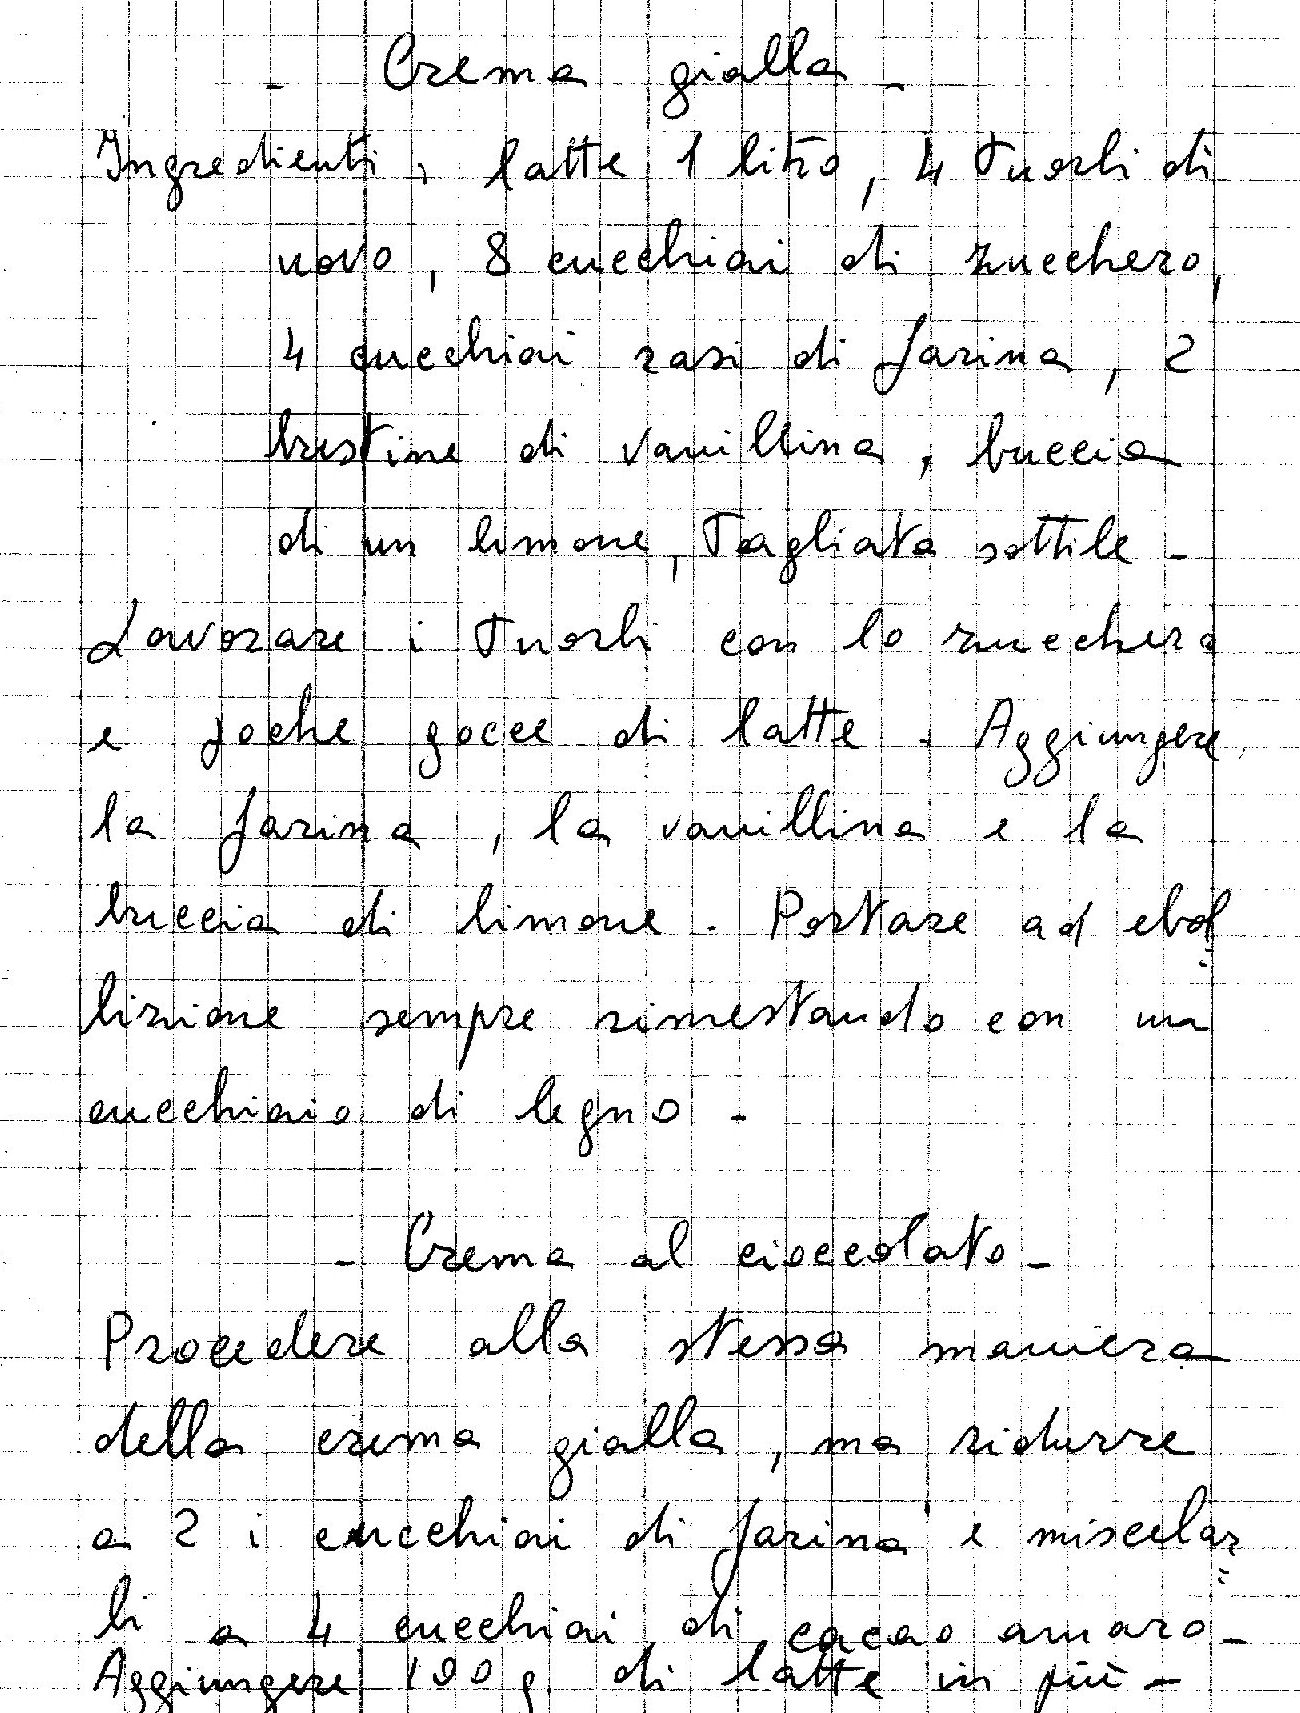 - Crema gialla -
Ingredienti: latte 1 litro, 4 tuorli di
uovo, 8 cucchiai di zucchero,
4 cucchiai rasi di farina, 2
bustine di vanillina, buccia
di un limone, tagliata sottile -
Lavorare i tuorli con lo zucchero
e poche gocce di latte. Aggiungere
la farina, la vanillina e la
buccia di limone. Portare ad ebol=
lizione sempre rimestando con un
cucchiaio di legno -
- Crema al cioccolato -
Procedere alla stessa maniera
della crema gialla, ma ridurre
a 2 i cucchiai di farina e miscelar=
li a 4 cucchiai di cacao amaro -
Aggiungere 100 g di latte in più -